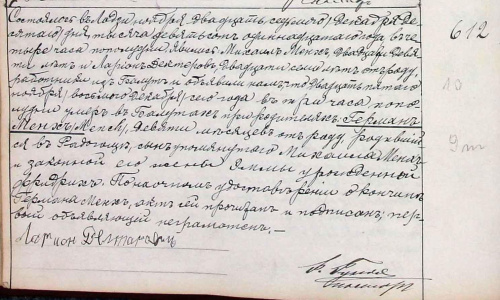 Состоялось въ Лодзи ноября двадцать седьмого / декабря де-
сятого / дня, тысяча девятьсотъ одиннадцатого года въ че-
тыре часа пополудни. Явились Михаилъ Менхъ, двадцати девя-
ти лѣтъ и Ларіонъ двадцати семи лѣтъ отъ роду,
работники изъ Балутъ и объявили намъ, что двадцать пятого
ноября / восьмого декабря / сего года въ три часа попо-
лудни умеръ въ Балутахъ при родителяхъ, Германъ
Менхъ /Mench/, девяти мѣсяцевъ отъ роду, родивший-
ся въ Радогощѣ, сынъ упомянутаго Михаила Менха
и законной его жены Эммы урожденной
Фридрихъ. По наочномъ удостовѣреніи о кончинѣ
Германа Менхъ, актъ сей прочитанъ и подписанъ, пер-
вый объявляющій неграмотенъ. —
Ларіон
612
10
9 m